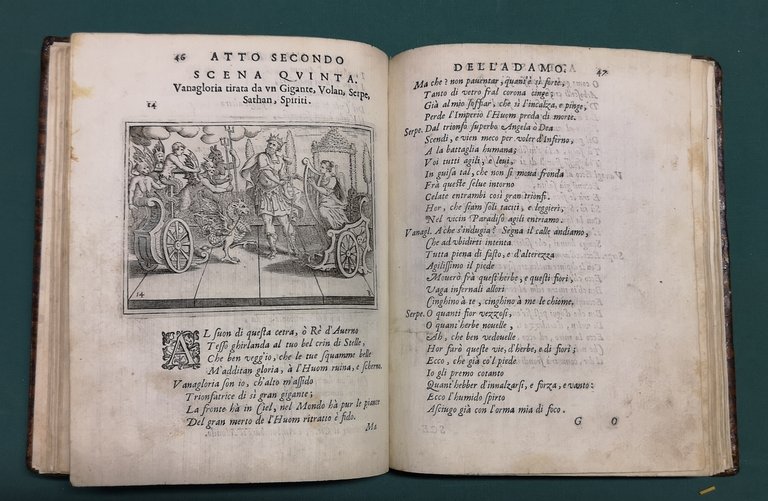 46 ATTO SECONDO
SCENA QVINTA.
Vanagloria tirata da vn Gigante, Volan, Serpe,
Sathan, Spiriti.
14
14
AL suon di questa cetra, ò Rè d'Auerno
Tesso ghirlanda al tuo bel crin di Stelle,
Che ben veggio, che le tue squamme belle
M'additan gloria, à l'Huom ruina, e scherno.
Vanagloria son io, ch'alto m'assido
Trionfatrice di sì gran gigante;
La fronte hà in Ciel, nel Mondo hà pur le piante
Del gran merto de l'Huom ritratto è fido.
Ma
DELL'ADAMO. 47
Ma che? non pauentar, quant'è sì forte,
Tanto di vetro fral corona cinge;
Già al mio soffiar, che sì l'incalza, e pinge,
Perde l'Imperio l'Huom preda di morte.
Serpe. Dal trionfo superbo Angela o Dea
Scendi, e vien meco per voler d'Inferno,
A la battaglia humana;
Voi tutti agili, e leui,
In guisa tal, che non si moua fronda
Frà queste selue intorno
Celate entrambi così gran trionfi.
Hor, che siam soli taciti, e leggieri,
Nel vicin Paradiso agili entriamo.
Vanagl. A che s'indugia? Segna il calle andiamo,
Che ad vbidirti intenta
Tutta piena di fasto, e d'alterezza
Agilissimo il piede
Mouerò frà quest'herbe, e questi fiori;
Vaga infernali allori
Cinghino à te, cinghino à me le chiome.
Serpe. O quanti fior vezzosi,
O quant'herbe nouelle,
Ah, che ben vedouelle,
Hor farò queste vie, d'herbe, e di fiori;
Ecco, che già co'l piede
Io gli premo cotanto
Quant'hebber d'innalzarsi, e forza, e vanto:
Ecco l'humido spirto
Asciugo già con l'orma mia di foco.
G O